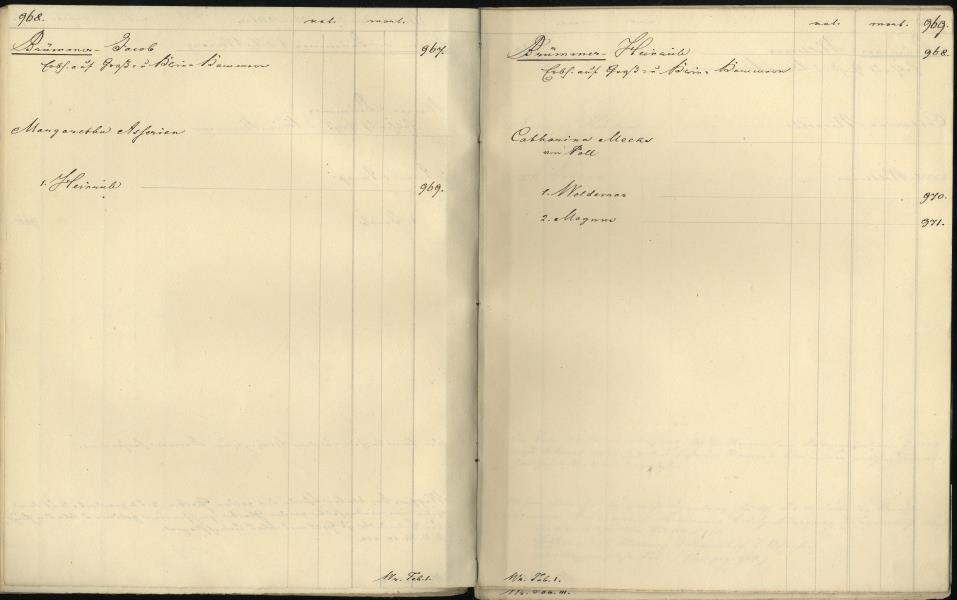 968.
nat. mort.
Brümmer - Jacob 967.
Erbh. auf Groß- u. Klein-Kammern
Margaretha Asserien
1. Heinrich 969.
Wr. Tab. 1.
nat. mort. 969.
Brümmer - Heinrich 968.
Erbh. auf Groß- u. Klein-Kammern
Catharina Mecks
von Poll
1. Woldemar 970.
2. Magnus 971.
Wr. Tab. 1.
Tab. III.